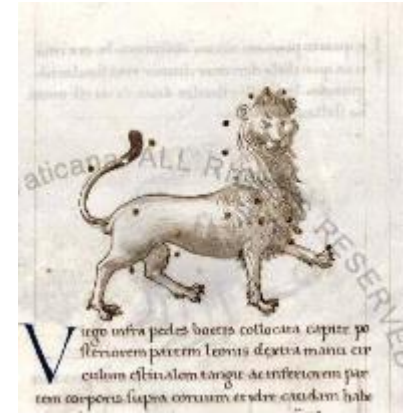 aticana ALL RIGHTS RESERVED
Virgo infra pedes bootis collocata capite po
steriorem partem leonis dextra manu cir
culum estivalem tangit ac inferiorem par
tem corporis supra coruum et ydre caudam habe